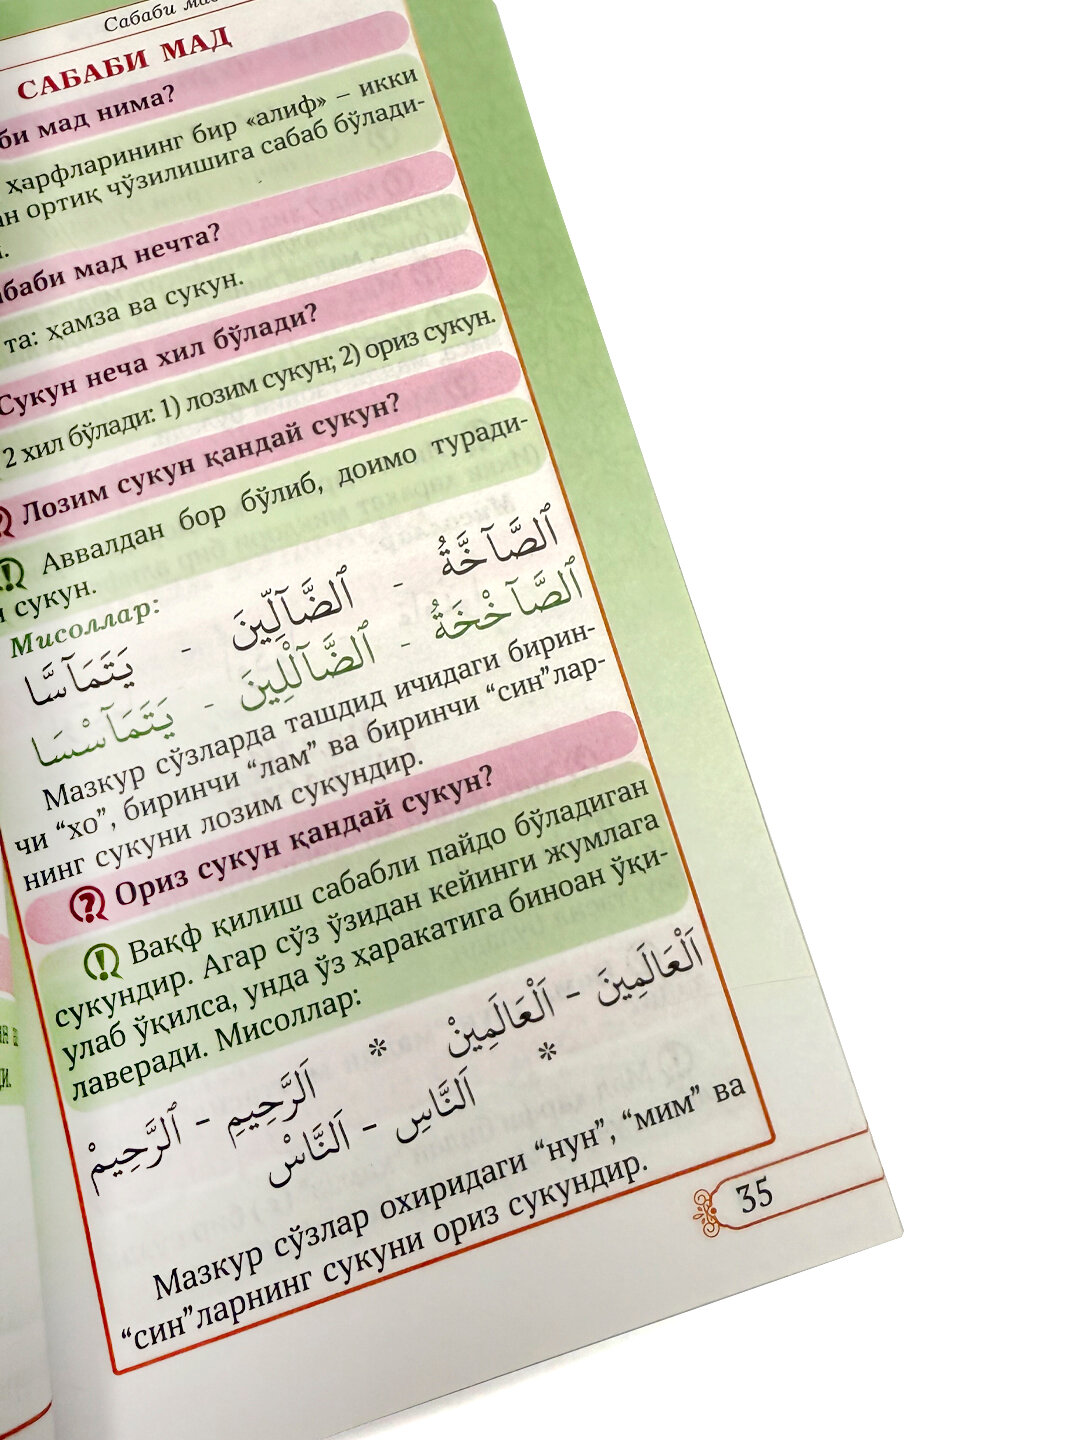 Сабаби
САБАБИ МАД
би мад нима?
ҳарфларининг бир «алиф» – икки
ан ортиқ чўзилишига сабаб бўлади-
баби мад нечта?
та: ҳамза ва сукун.
Сукун неча хил бўлади?
2 хил бўлади: 1) лозим сукун; 2) ориз сукун.
Лозим сукун қандай сукун?
Аввалдан бор бўлиб, доимо туради-
сукун.
Мисоллар:
ٱلصَّآخَّةُ - ٱلضَّآلِّينَ - يَتَمَآسَّا
ٱلصَّآخْخَةُ - ٱلضَّآلْلِينَ - يَتَمَآسْسَا
Мазкур сўзларда ташдид ичидаги бирин-
чи “хо”, биринчи “лам” ва биринчи “син”лар-
нинг сукуни лозим сукундир.
Ориз сукун қандай сукун?
Вақф қилиш сабабли пайдо бўладиган
сукундир. Агар сўз ўзидан кейинги жумлага
улаб ўқилса, унда ўз ҳаракатига биноан ўқи-
лаверади. Мисоллар:
اَلْعَالَمِينَ – اَلْعَالَمِينْ *
اَلرَّحِيمِ – ٱلرَّحِيمْ *
اَلنَّاسِ – اَلنَّاسْ
Мазкур сўзлар охиридаги “нун”, “мим” ва
“син”ларнинг сукуни ориз сукундир.
35